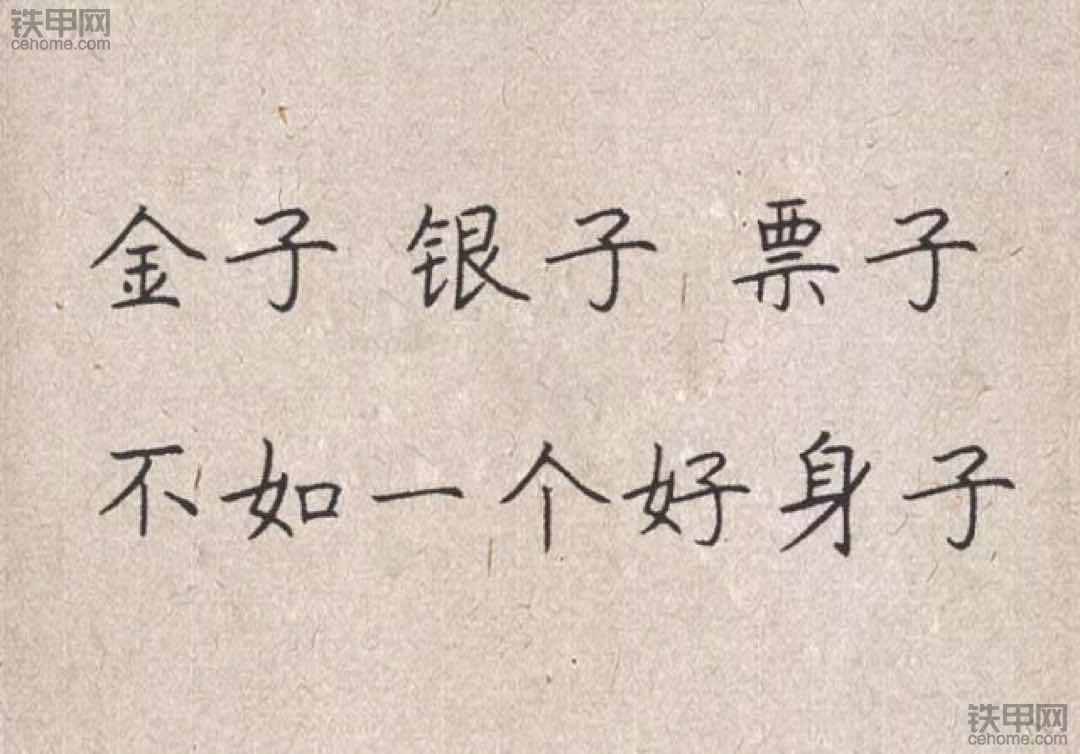 铁甲网
cehome.com
金子 银子 票子
不如一个好身子
铁甲网
cehome.com